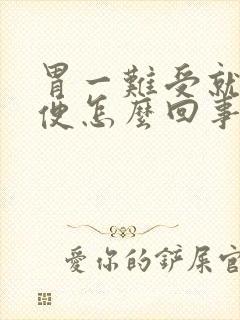 胃一難受就
便怎麼回事
愛你的鏟屎官